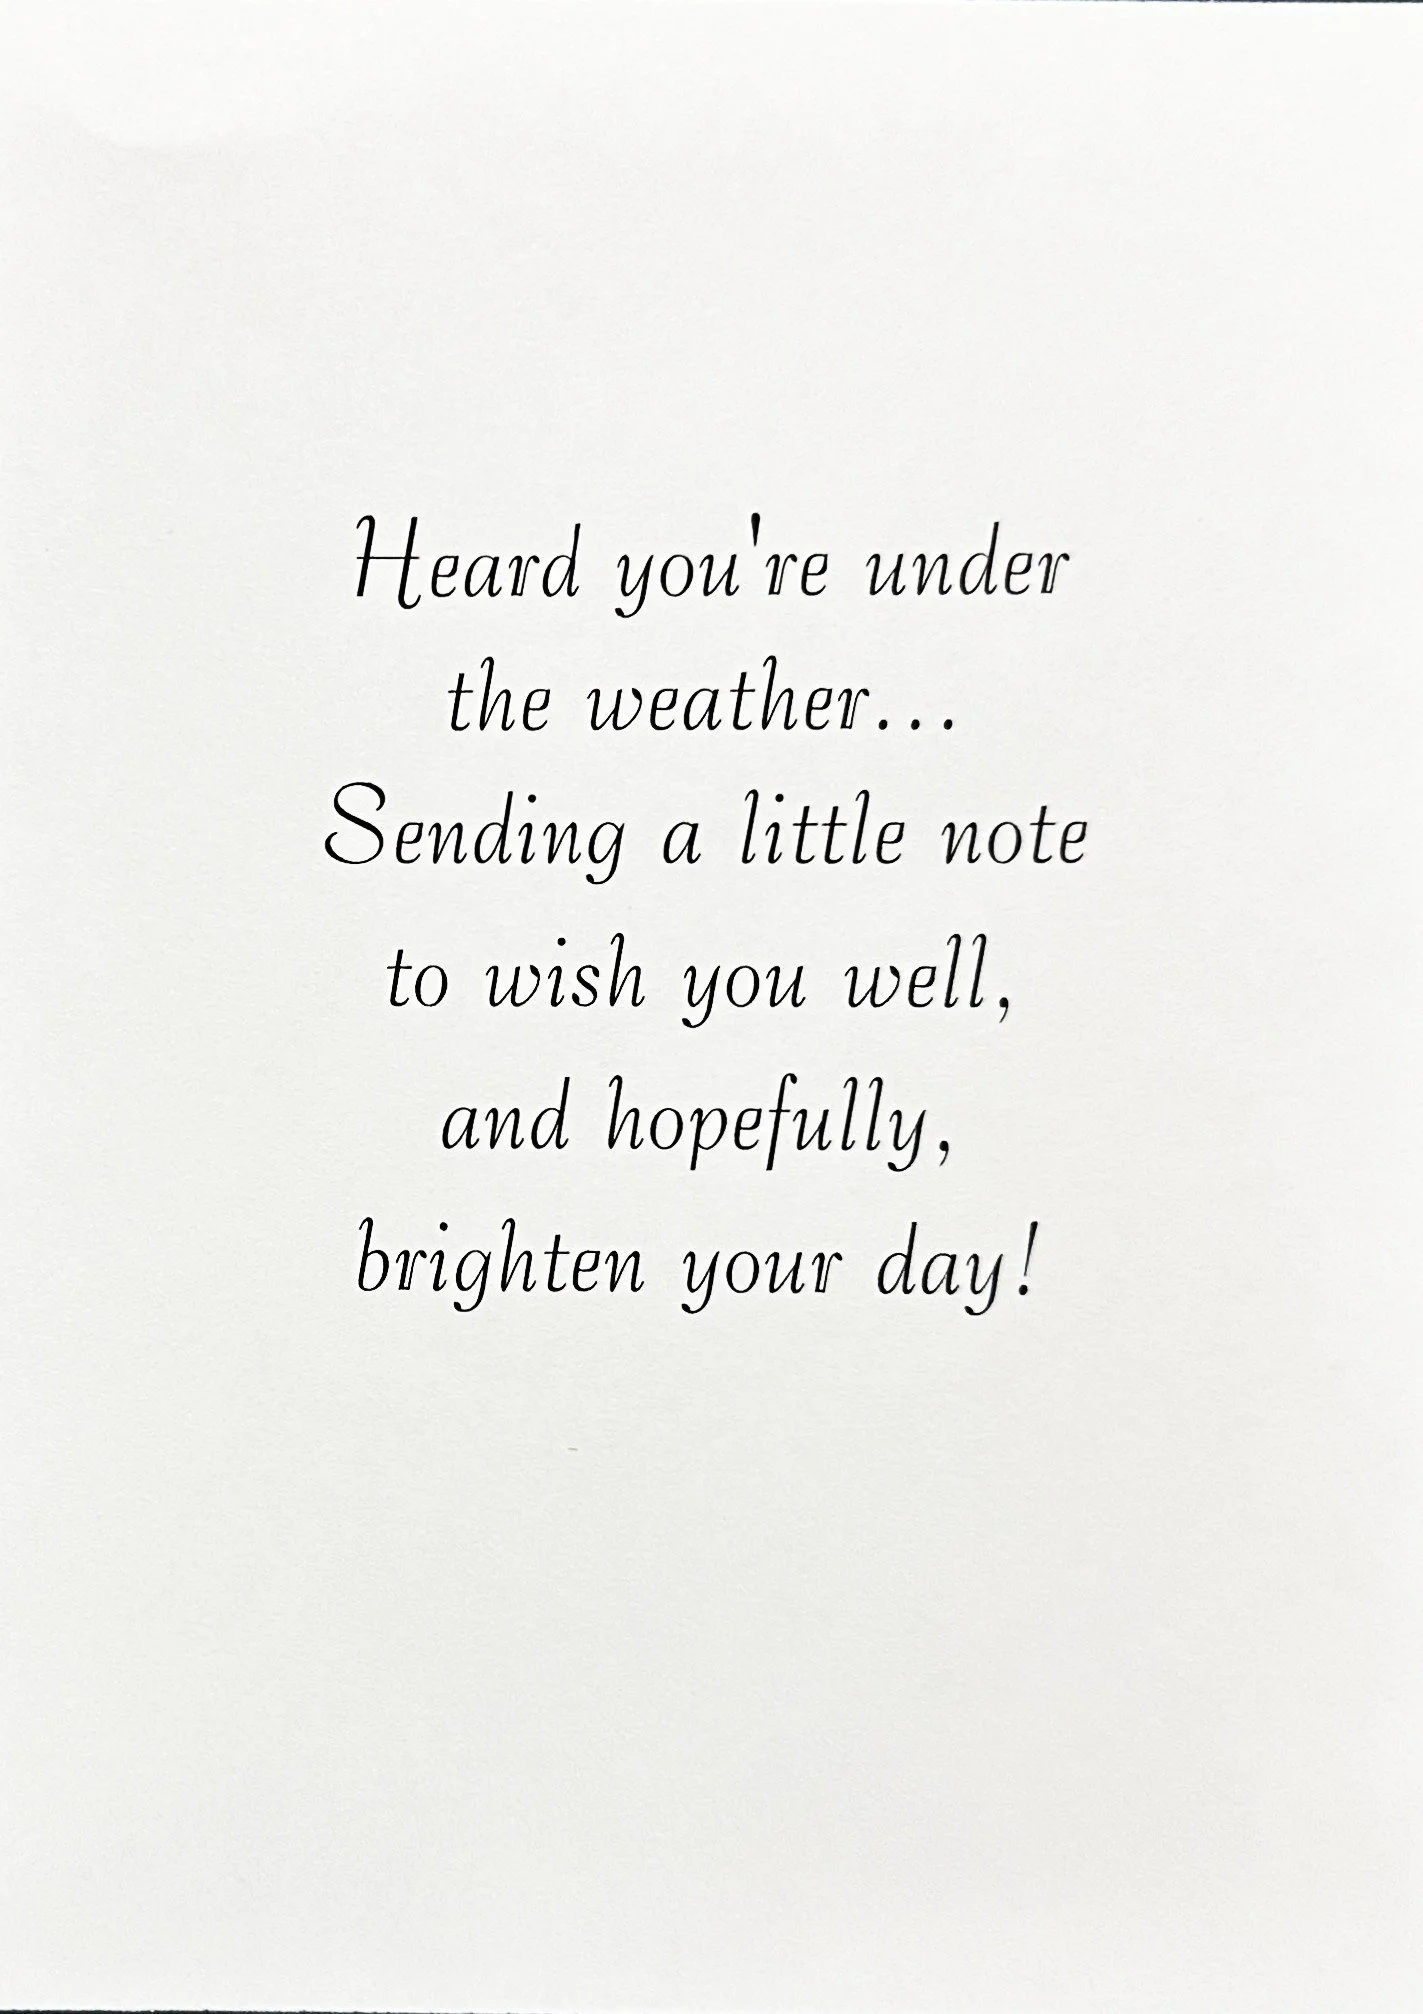 Heard you're under
the weather...
Sending a little note
to wish you well,
and hopefully,
brighten your day!